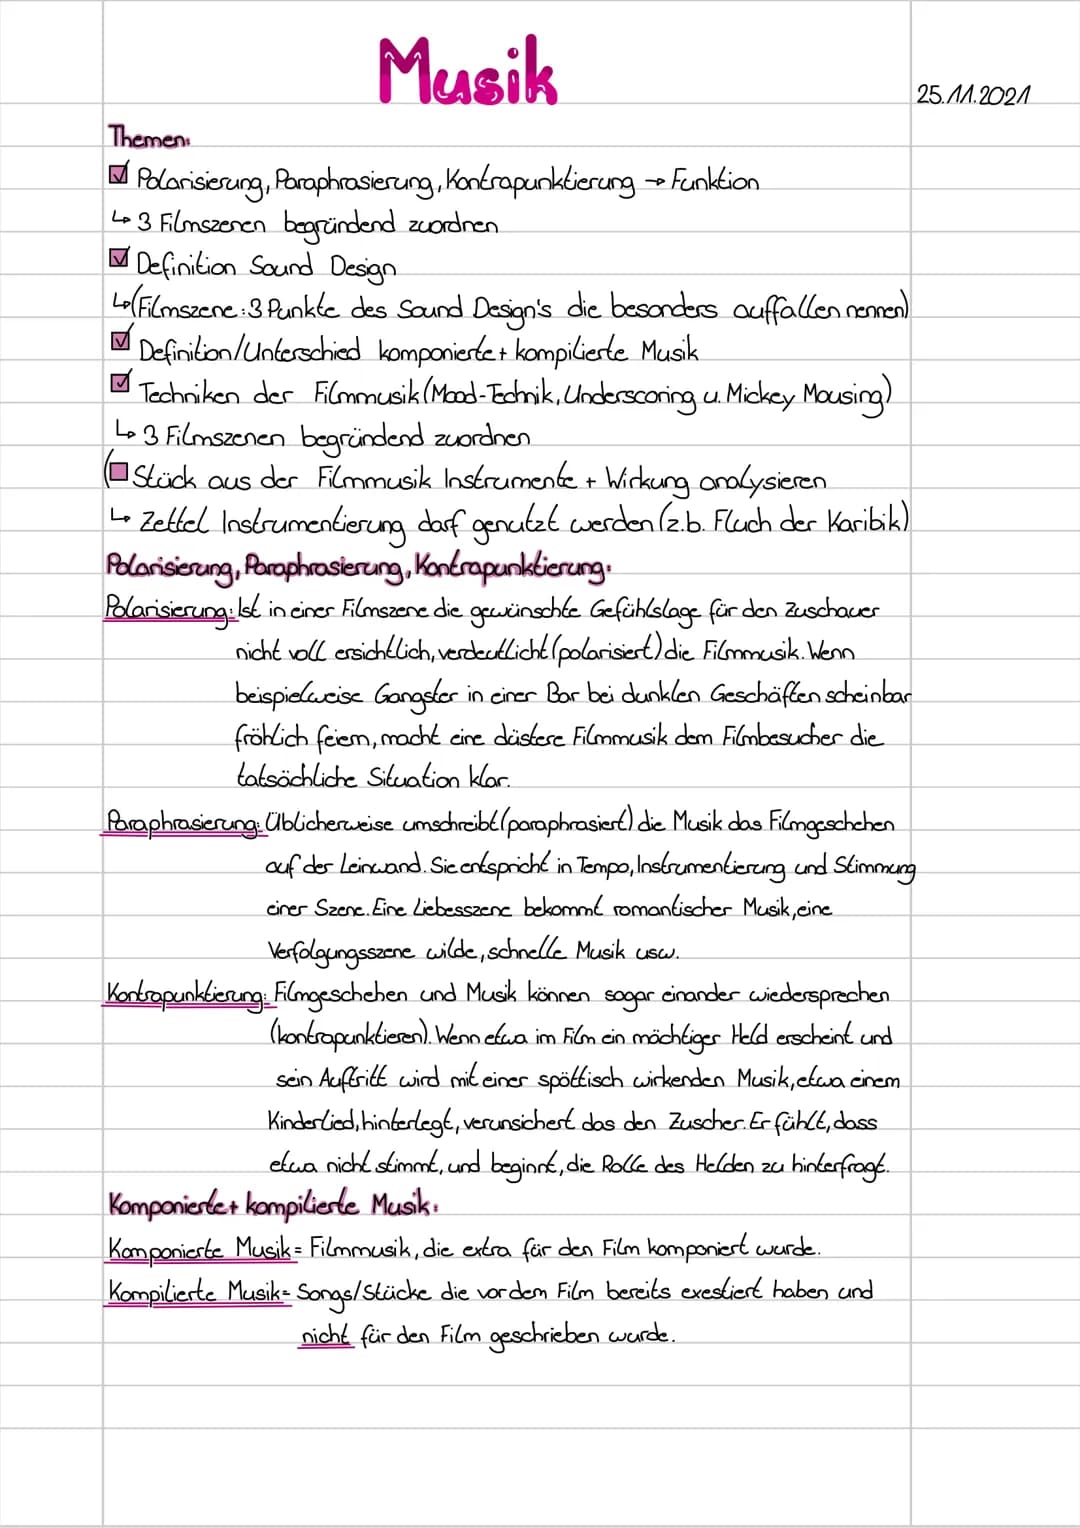 Musik
25.11.2021
Themen:
☑ Polarisierung, Paraphrasierung, Kontrapunktierung → Funktion
↳ 3 Filmszenen begründend zuordnen
☑ Definition Sound Design
↳ (Filmszene: 3 Punkte des Sound Design's die besonders auffallen nennen)
☑ Definition/Unterschied komponierte + kompilierte Musik
☑ Techniken der Filmmusik (Mood-Technik, Underscoring u. Mickey Mousing)
↳ 3 Filmszenen begründend zuordnen
(☐ Stück aus der Filmmusik Instrumente + Wirkung analysieren
↳ Zettel Instrumentierung darf genutzt werden (z.b. Fluch der Karibik)
Polarisierung, Paraphrasierung, Kontrapunktierung:
Polarisierung: Ist in einer Filmszene die gewünschte Gefühlslage für den Zuschauer
nicht voll ersichtlich, verdeutlicht (polarisiert) die Filmmusik. Wenn
beispielweise Gangster in einer Bar bei dunklen Geschäften scheinbar
fröhlich feiern, macht eine düstere Filmmusik dem Filmbesucher die
tatsächliche Situation klar.
Paraphrasierung: Üblicherweise umschreibt (paraphrasiert) die Musik das Filmgeschehen
auf der Leinwand. Sie entspricht in Tempo, Instrumentierung und Stimmung
einer Szene. Eine Liebesszene bekommt romantischer Musik, eine
Verfolgungsszene wilde, schnelle Musik usw.
Kontrapunktierung: Filmgeschehen und Musik können sogar einander wiedersprechen
(kontrapunktieren). Wenn etwa im Film ein mächtiger Held erscheint und
sein Auftritt wird mit einer spöttisch wirkenden Musik, etwa einem
Kinderlied, hinterlegt, verunsichert das den Zuscher. Er fühlt, dass
etwa nicht stimmt, und beginnt, die Rolle des Helden zu hinterfragt.
Komponierte + kompilierte Musik:
Komponierte Musik = Filmmusik, die extra für den Film komponiert wurde.
Kompilierte Musik = Songs/Stücke die vor dem Film bereits exestiert haben und
nicht für den Film geschrieben wurde.